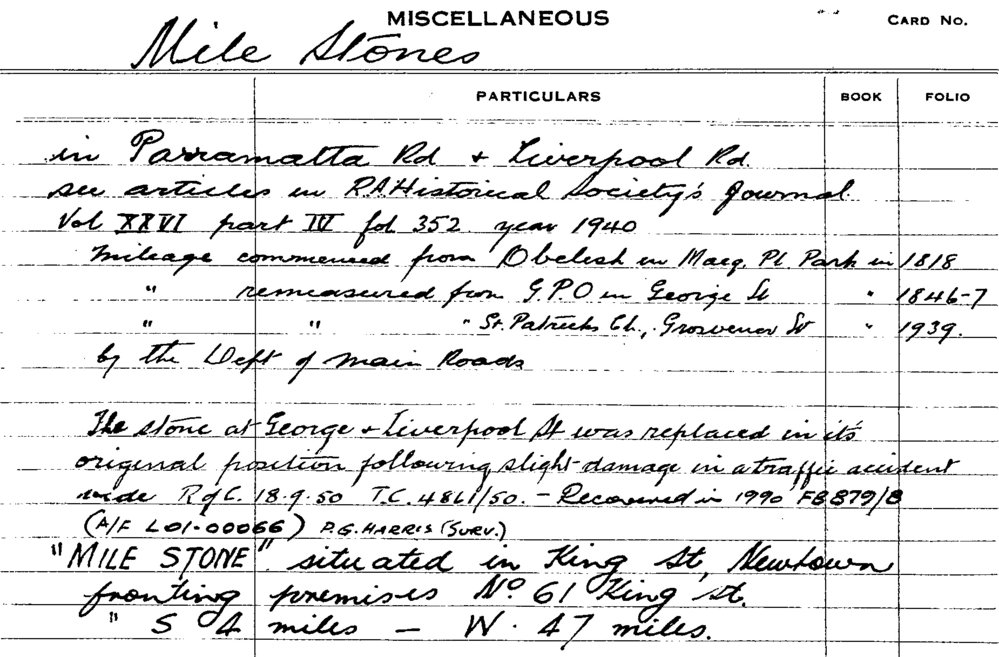 MISCELLANEOUS
CARD NO.
Mile Stones
PARTICULARS BOOK FOLIO
in Parramatta Rd + Liverpool Rd.
see articles in R.A. Historical Society's Journal
Vol XXVI part IV fol 352 year 1940
Mileage commenced from Obelisk in Macq. Pl. Park in 1818
" remeasured from G.P.O in George St " 1846-7
" " " St. Patricks Ch., Grosvenor St " 1939.
by the Dept of Main Roads
The stone at George + Liverpool St was replaced in it's
original position following slight damage in a traffic accident
vide R of C. 18.9.50 T.C. 4861/50. - Recovered in 1990 FB879/8
(A/F L01-00066) P.G. HARRIS (SURV.)
"MILE STONE" situated in King St, Newtown
fronting premises No 61 King St.
" S 4 miles — W. 47 miles.